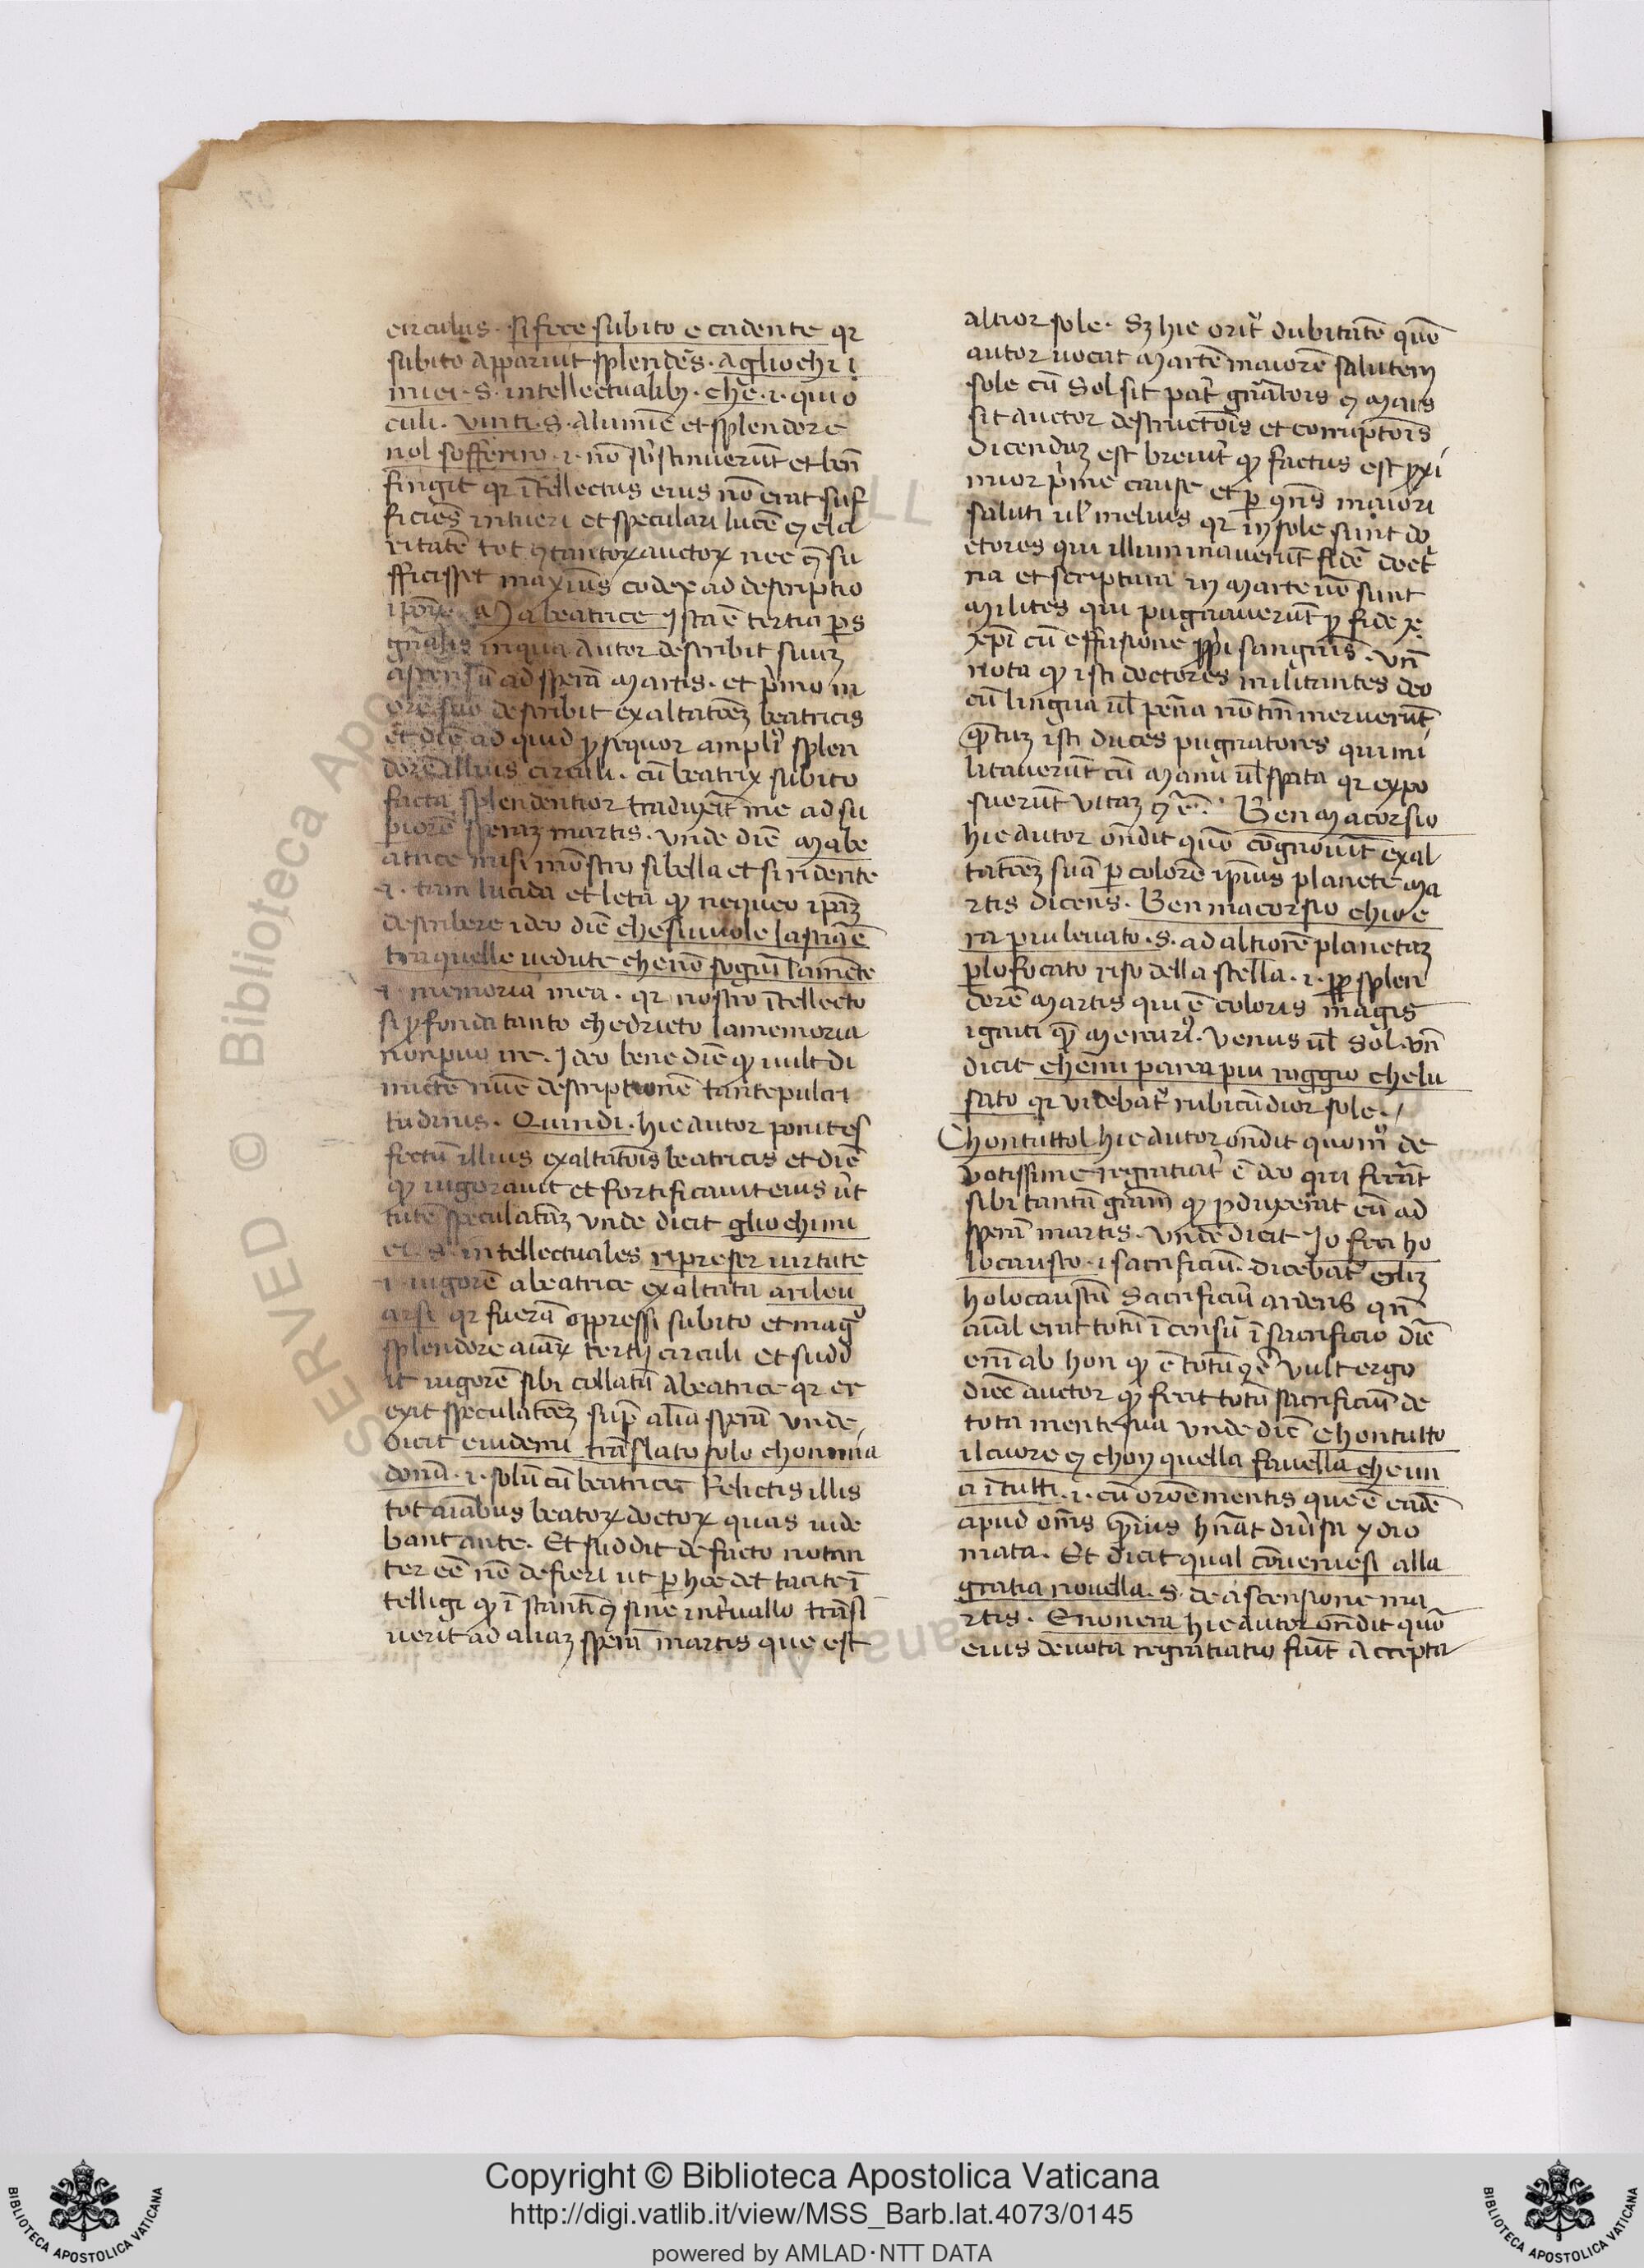 circulus · si fece subito e cadente qr
subito apparuit splendēs · agliochi i
miei · S · intellectualibꝫ · chē · i · qui o
culi · vinti · S · a lumīe et splendore
nol sofferiro · i · nō sustinuerūt et bn̄
fingit qr ītellectus eius nō erat suf
ficiēs intueri et speculari lucē ⁊ cla
ritatē tot ⁊ tantoꝝ auctoꝝ nec
fficisset maxim codex ad descriptio
Ma beatrice ista ē tertia ps
gn̄alis in qua autor describit suuꝫ
ascensū ad sperā martis · et primo in
describit exaltatōeꝫ beatricis
et dicē ad quid ꝓsequor ampli splen
dorē illius circuli · cū beatrix subito
facta splendentior traduxit me ad su
piorē speraꝫ martis · vnde dicē Ma be
atrice misi mōstro si bella et si ridente
i · tam lucida et leta qꝫ nequeo ipaꝫ
describere ideo dicē che si vuole lasciarē
tra quelle vedute che nō seguir la mēte
i · memoria mea · qr nostro ītellecto
si ꝓfonda tanto che drieto la memoria
non puo ire · Ideo bene dicē qꝫ vult di
mictē descriptionē tante pulcri
tudinis · Quindi · hic autor ponit ef
fectū illius exaltatōis beatricis et dicē
qꝫ uigoravit et fortificavit eius vir
tutē speculatiuaꝫ vnde dicit gliochi mi
ei · S · intellectuales ripreser virtute
i · uigorē a beatrice exaltata a rileu
arsi qr fuerā oppressi subito et mag̊
splendore aiaꝝ tertij circuli et subd
it uigorē sibi collatū a beatrice qr er
exit speculatōeꝫ sup̄ aliā sperā vnde
dicit e uidemi trāslato solo chon mia
donā · i · solū cū beatrice Relictis illis
tot aīabus beatoꝝ doctoꝝ quas uide
bant ante · Et subdit de facto notan
ter eē nō de fieri ut p hoc det tacite ī
telligi qꝫ ī stanti ⁊ sine int̄uallo trāsi
uerit ad aliaꝫ sperā martis que est
altior sole · Sꝫ hic oritr dubitatē quō
autor uocat Martē maiorē salutem
sole cū Sol sit pat̄ gn̄atōis ⁊ mars
sit auctor destructōis et corruptōis
dicenduꝫ est breuit̄ qꝫ factus est ꝓxi
mior prime cause et p qn̄s maiori
saluti ul melius qr in sole sunt do
ctores qui illuminaverūt fidē doct̄
na et scriptura in Marte uō sunt
milites qui pugnaverūt ꝓ fide
xp̄i cū effusione ꝓpi sanguis · Vn̄
nota qꝫ isti doctores militantes deo
cū lingua ul pēna nō tm̄ meruerūt
quātuꝫ isti duces pugnatores qui mi
litaverūt cū manu ul spata qr expo
suerūt vitaꝫ ⁊ c̄ · Ben macorsio
hic autor on̄dit quō cōgnouit exal
tatōeꝫ suā p colorē ipius planete ma
rtis dicens · Ben macorsio chio e
ra piu levato · S · ad altiorē planetaꝫ
p lo focato riso della stella · i · ꝓp splen
dorē martis qui ē coloris magis
igniti qā mercuri · Venus ul Sol · vn̄
dicit che mi parea piu roggio che lu
sato qr videbat̄ rubicūdior sole ·
Chontuttol hic autor on̄dit quom̊ de
votissime regratiat̄ ē deo qui fecāt
sibi tantā grām qꝫ ꝑduxerat eū ad
sperā martis · Vnde dicit Io feci ho
locausto · i sacrificiū · dicebat̄
holocaustū Sacrificiū ardens qn̄
aīal erat totū ī censū ī sacrificio dicē
eni ab hon qꝫ ē totū Vult ergo
dicē auctor qꝫ fecit totū sacrificiū de
tota mente sua vnde dicē Chontutto
il cuore ⁊ chon quella favella che un
a ī tutti · i · cū orōe mentis que ē eadē
apud om̄s quāuis hn̄at diuisa ydio
mata · Et dicit qual cōueniesi alla
gratia novella · S · de ascensione ma
rtis · Enonera hic autor on̄dit quō
eius devota regratiatio fuit accepta
Copyright © Biblioteca Apostolica Vaticana
http://digi.vatlib.it/view/MSS_Barb.lat.4073/0145
powered by AMLAD·NTT DATA
BIBLIOTECA APOSTOLICA VATICANA
BIBLIOTECA APOSTOLICA VATICANA